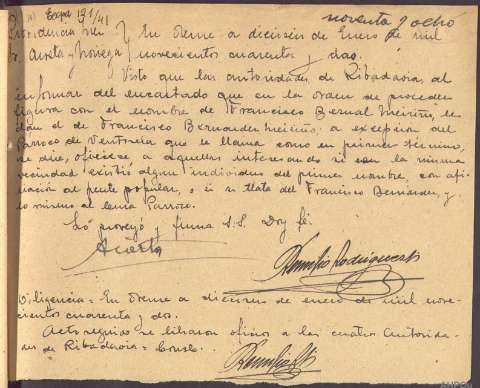 noventa y ocho
Expe 191/41
Providencia Juez En Orense a dieciseis de Enero de mil
Sr. Acosta y Novega novecientos cuarenta y dos.
Visto que las autoridades de Ribadavia al
informar del encartado que en la orden de proceder
figura con el nombre de Francisco Bernal le
dan el de Francisco Bernardez a excepcion del
Parroco de Ventosela que le llama como en primer termino,
se dice, ofíciese a aquellas interesando si en la misma
vecindad existió algun individuo del primer nombre, con afi-
nación al frente popular, o si se trata del Francisco Bernardez y
lo mismo al cura Parroco.
Lo proveyó y firma S.S. Doy fé.
Acosta
Remigio Rodriguez
Diligencia = En Orense a de enero de mil nove-
cientos cuarenta y dos.
Acto seguido se libraron oficios a las cuatro autorida-
des de Ribadavia =
Remigio